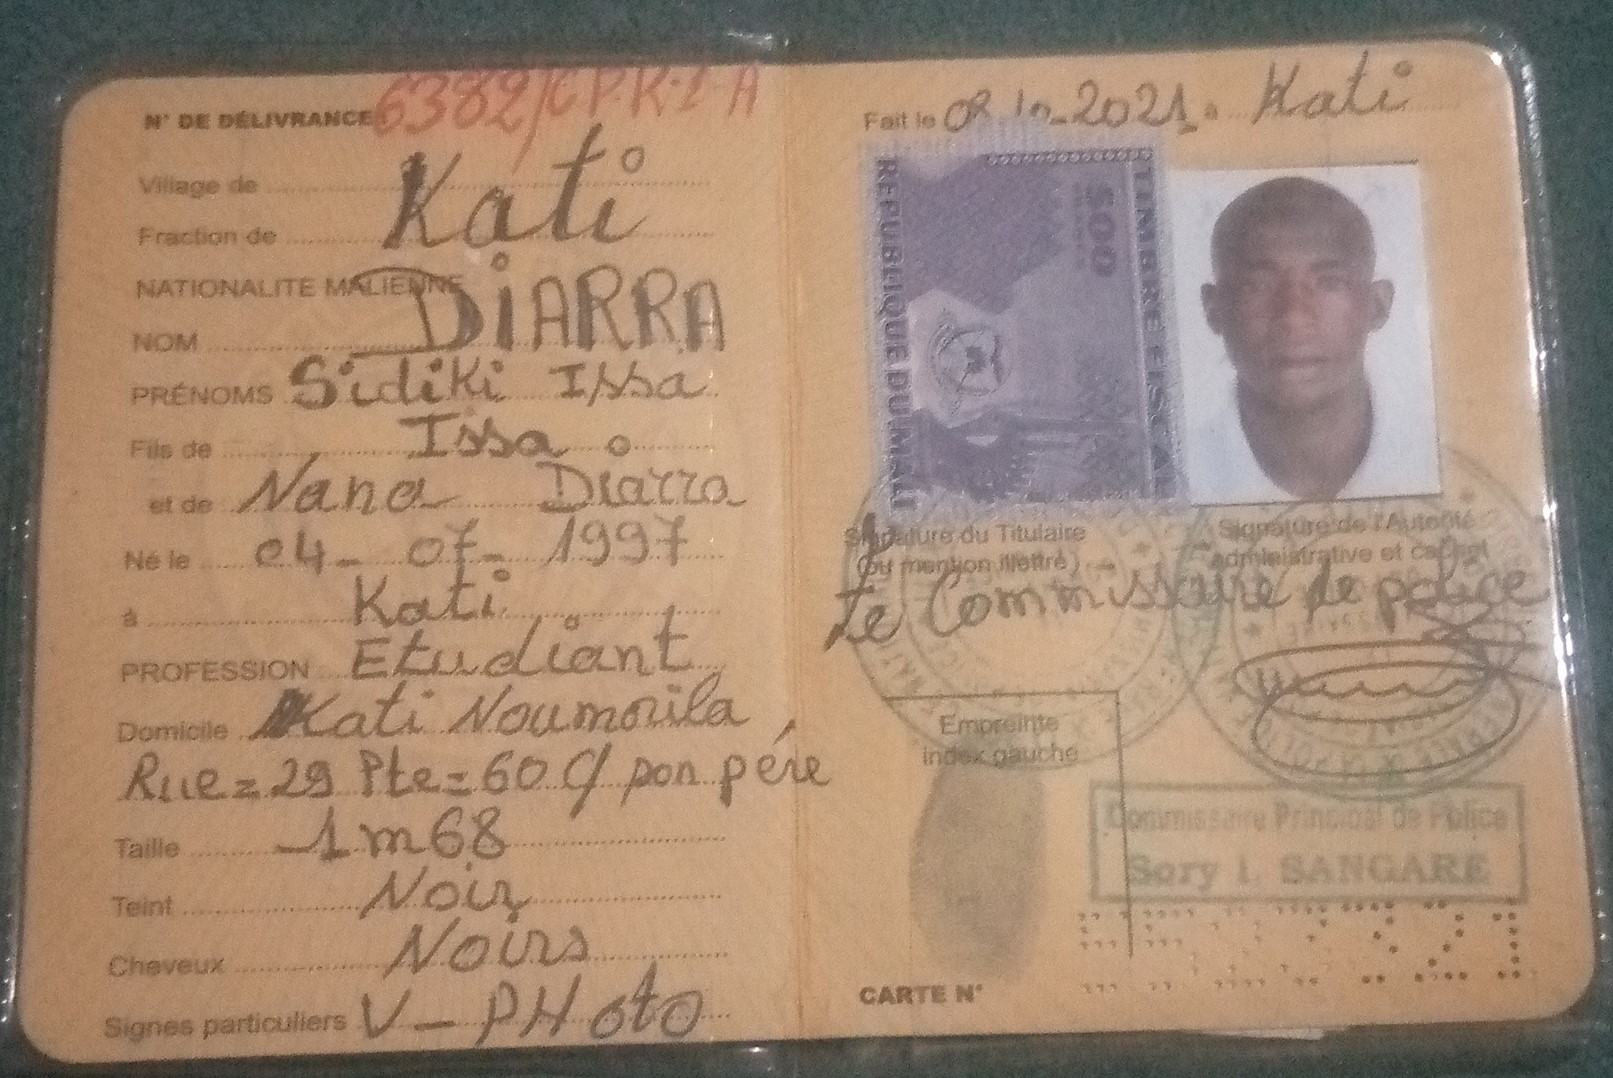 N° DE DÉLIVRANCE 6382/CPK-1-A
Village de Kati
Fraction de
NATIONALITE MALIENNE
NOM DiARRA
PRÉNOMS Sidiki Issa
Fils de Issa
et de Nana Diarra
Né le 04-07-1997
à Kati
PROFESSION Etudiant
Domicile Kati Noumorila
Rue=29 Pte=60 C/ son père
Taille 1m68
Teint Noir
Cheveux Noirs
Signes particuliers V-PHoto
Fait le 08-10-2021 à Kati
TIMBRE FISCAL
500
REPUBLIQUE DU MALI
Signature du Titulaire
(ou mention illettré)
Signature de l'Autorité
administrative et cachet
Le Commissaire de police
Empreinte
index gauche
Commissaire Principal de Police
Sory I. SANGARE
CARTE N°